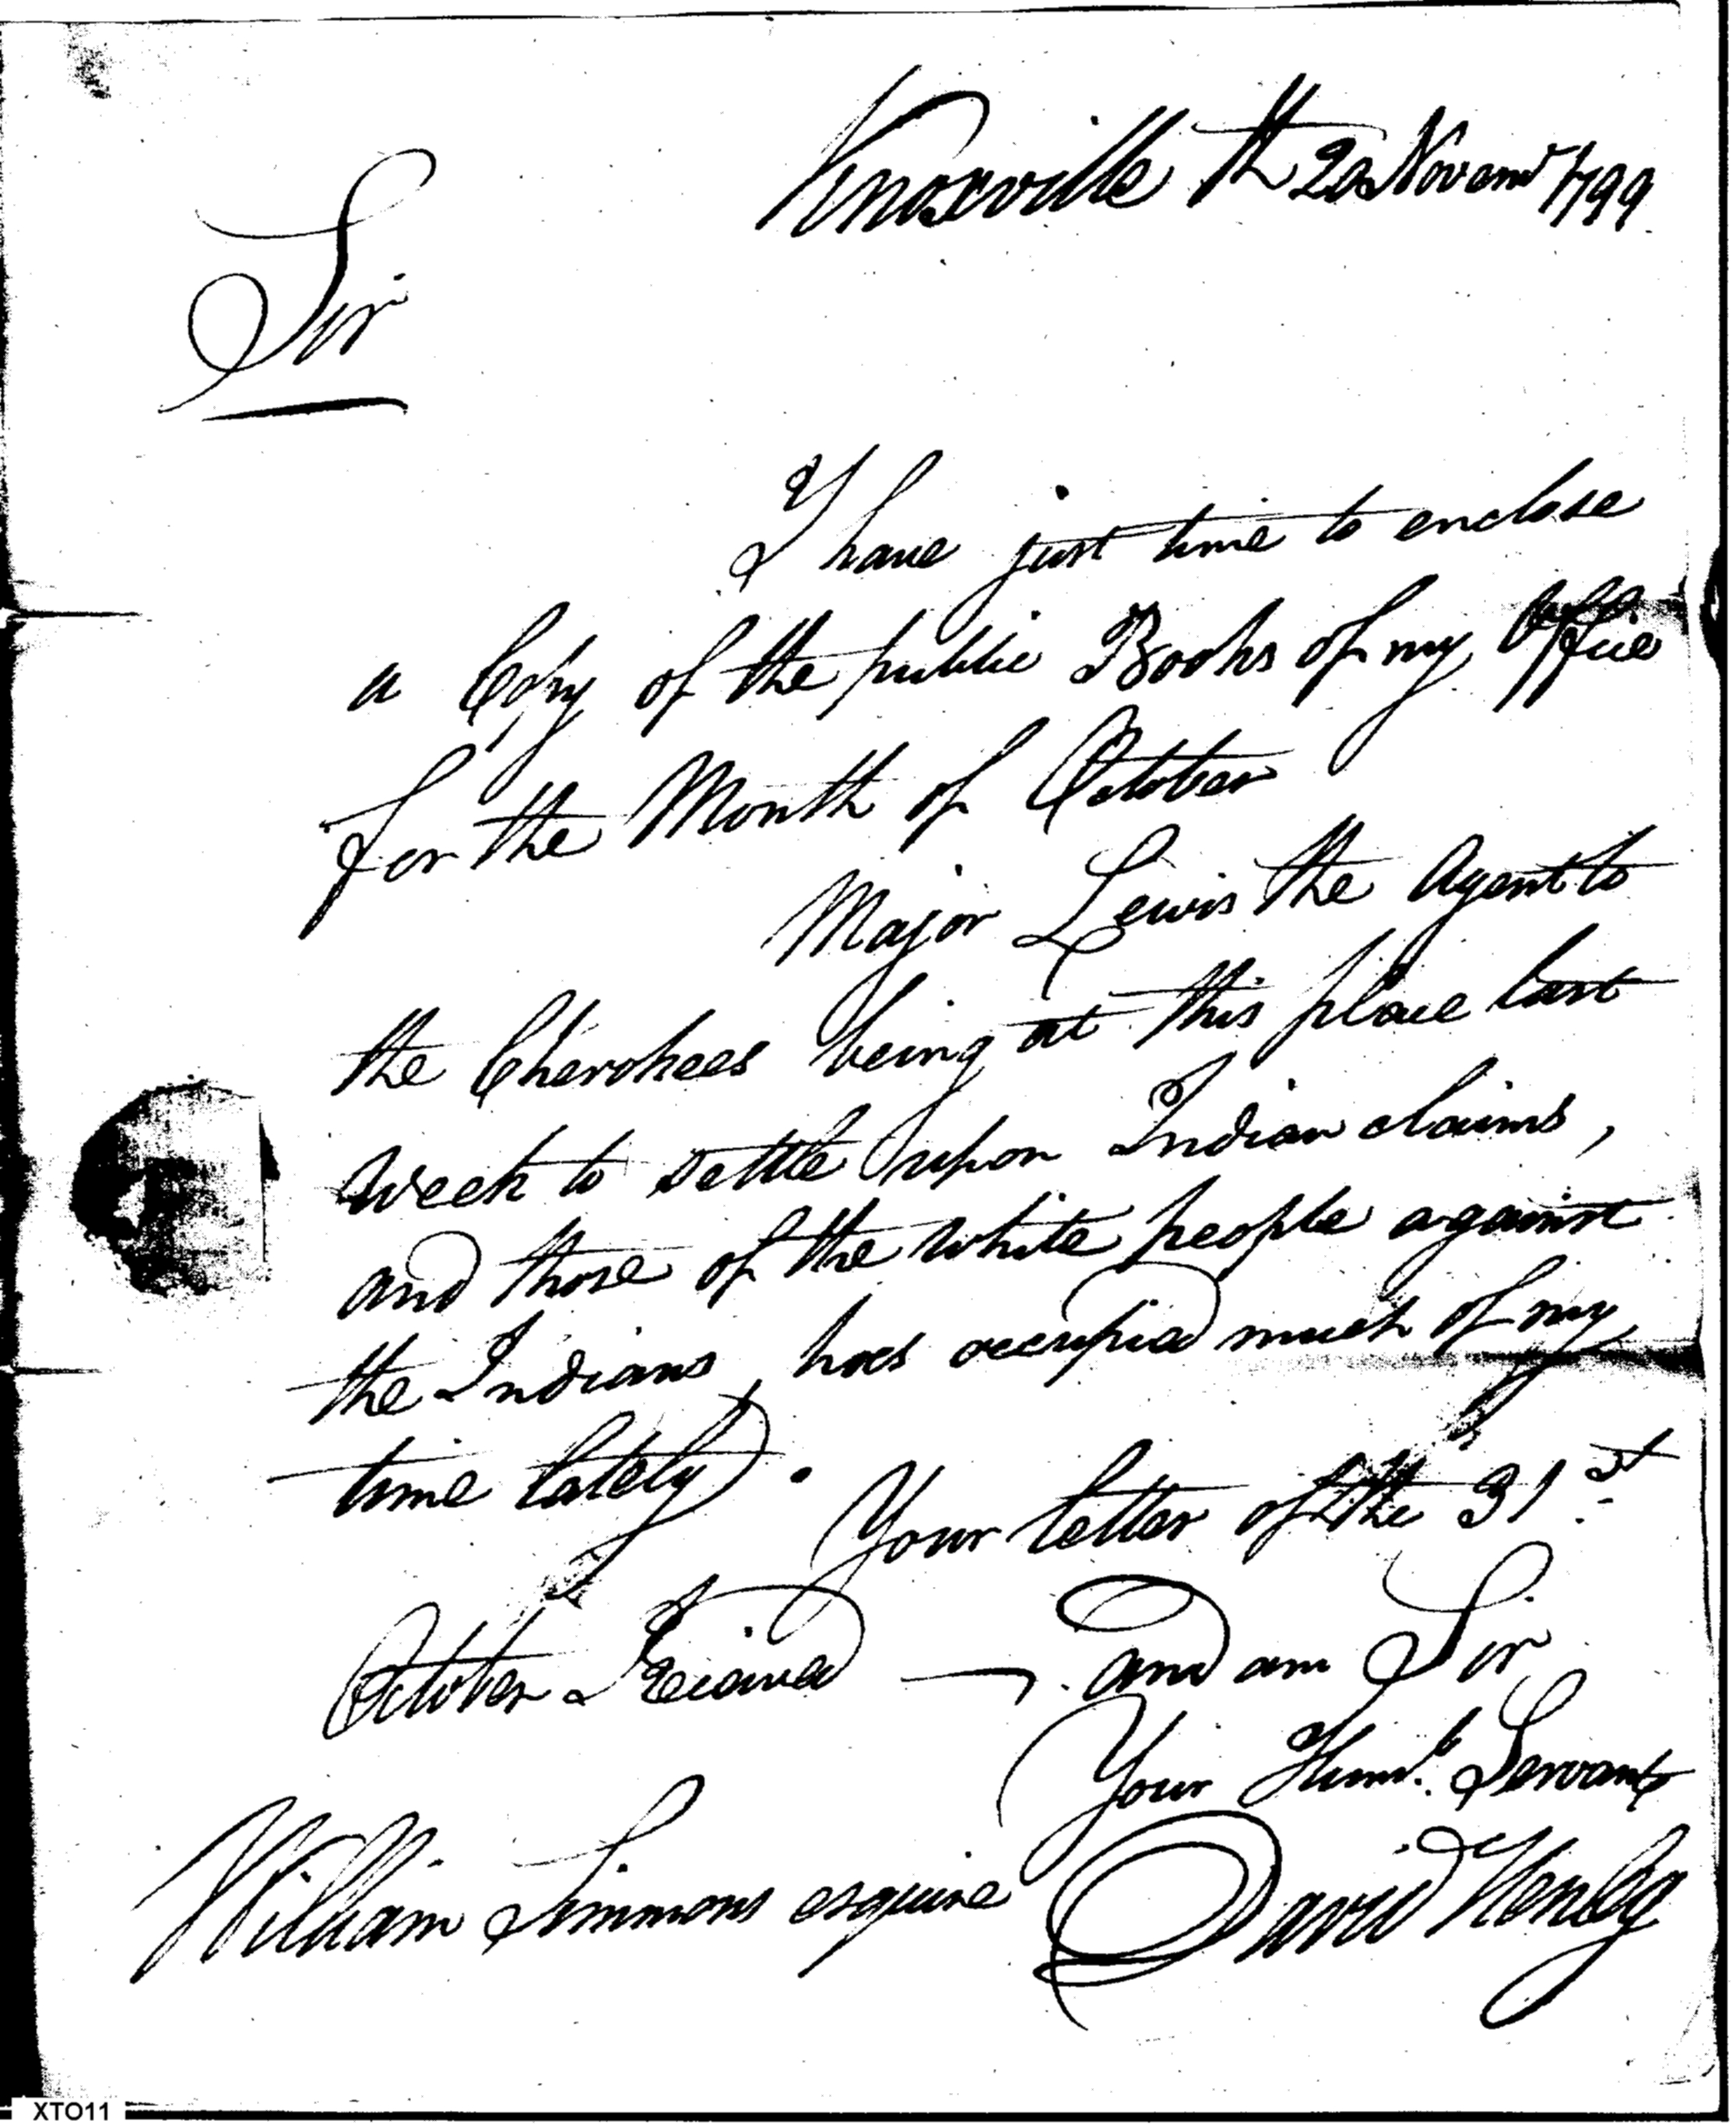 Knoxville th 20 Novemr 1799
Sir
I have just time to enclose
a Copy of the public Books of my Office
for the Month of October
Major Lewis the Agent to
the Cherokees being at this place last
week to settle upon Indian claims,
and those of the white people against
the Indians, has occupied much of my
time lately.
Your letter of the 31st
October Received — and am Sir
Your Humb. Servant
William Simmons esquire David Henley
XTO11